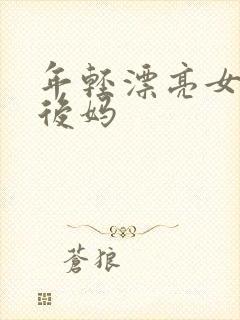 年轻漂亮女
後妈
蒼狼